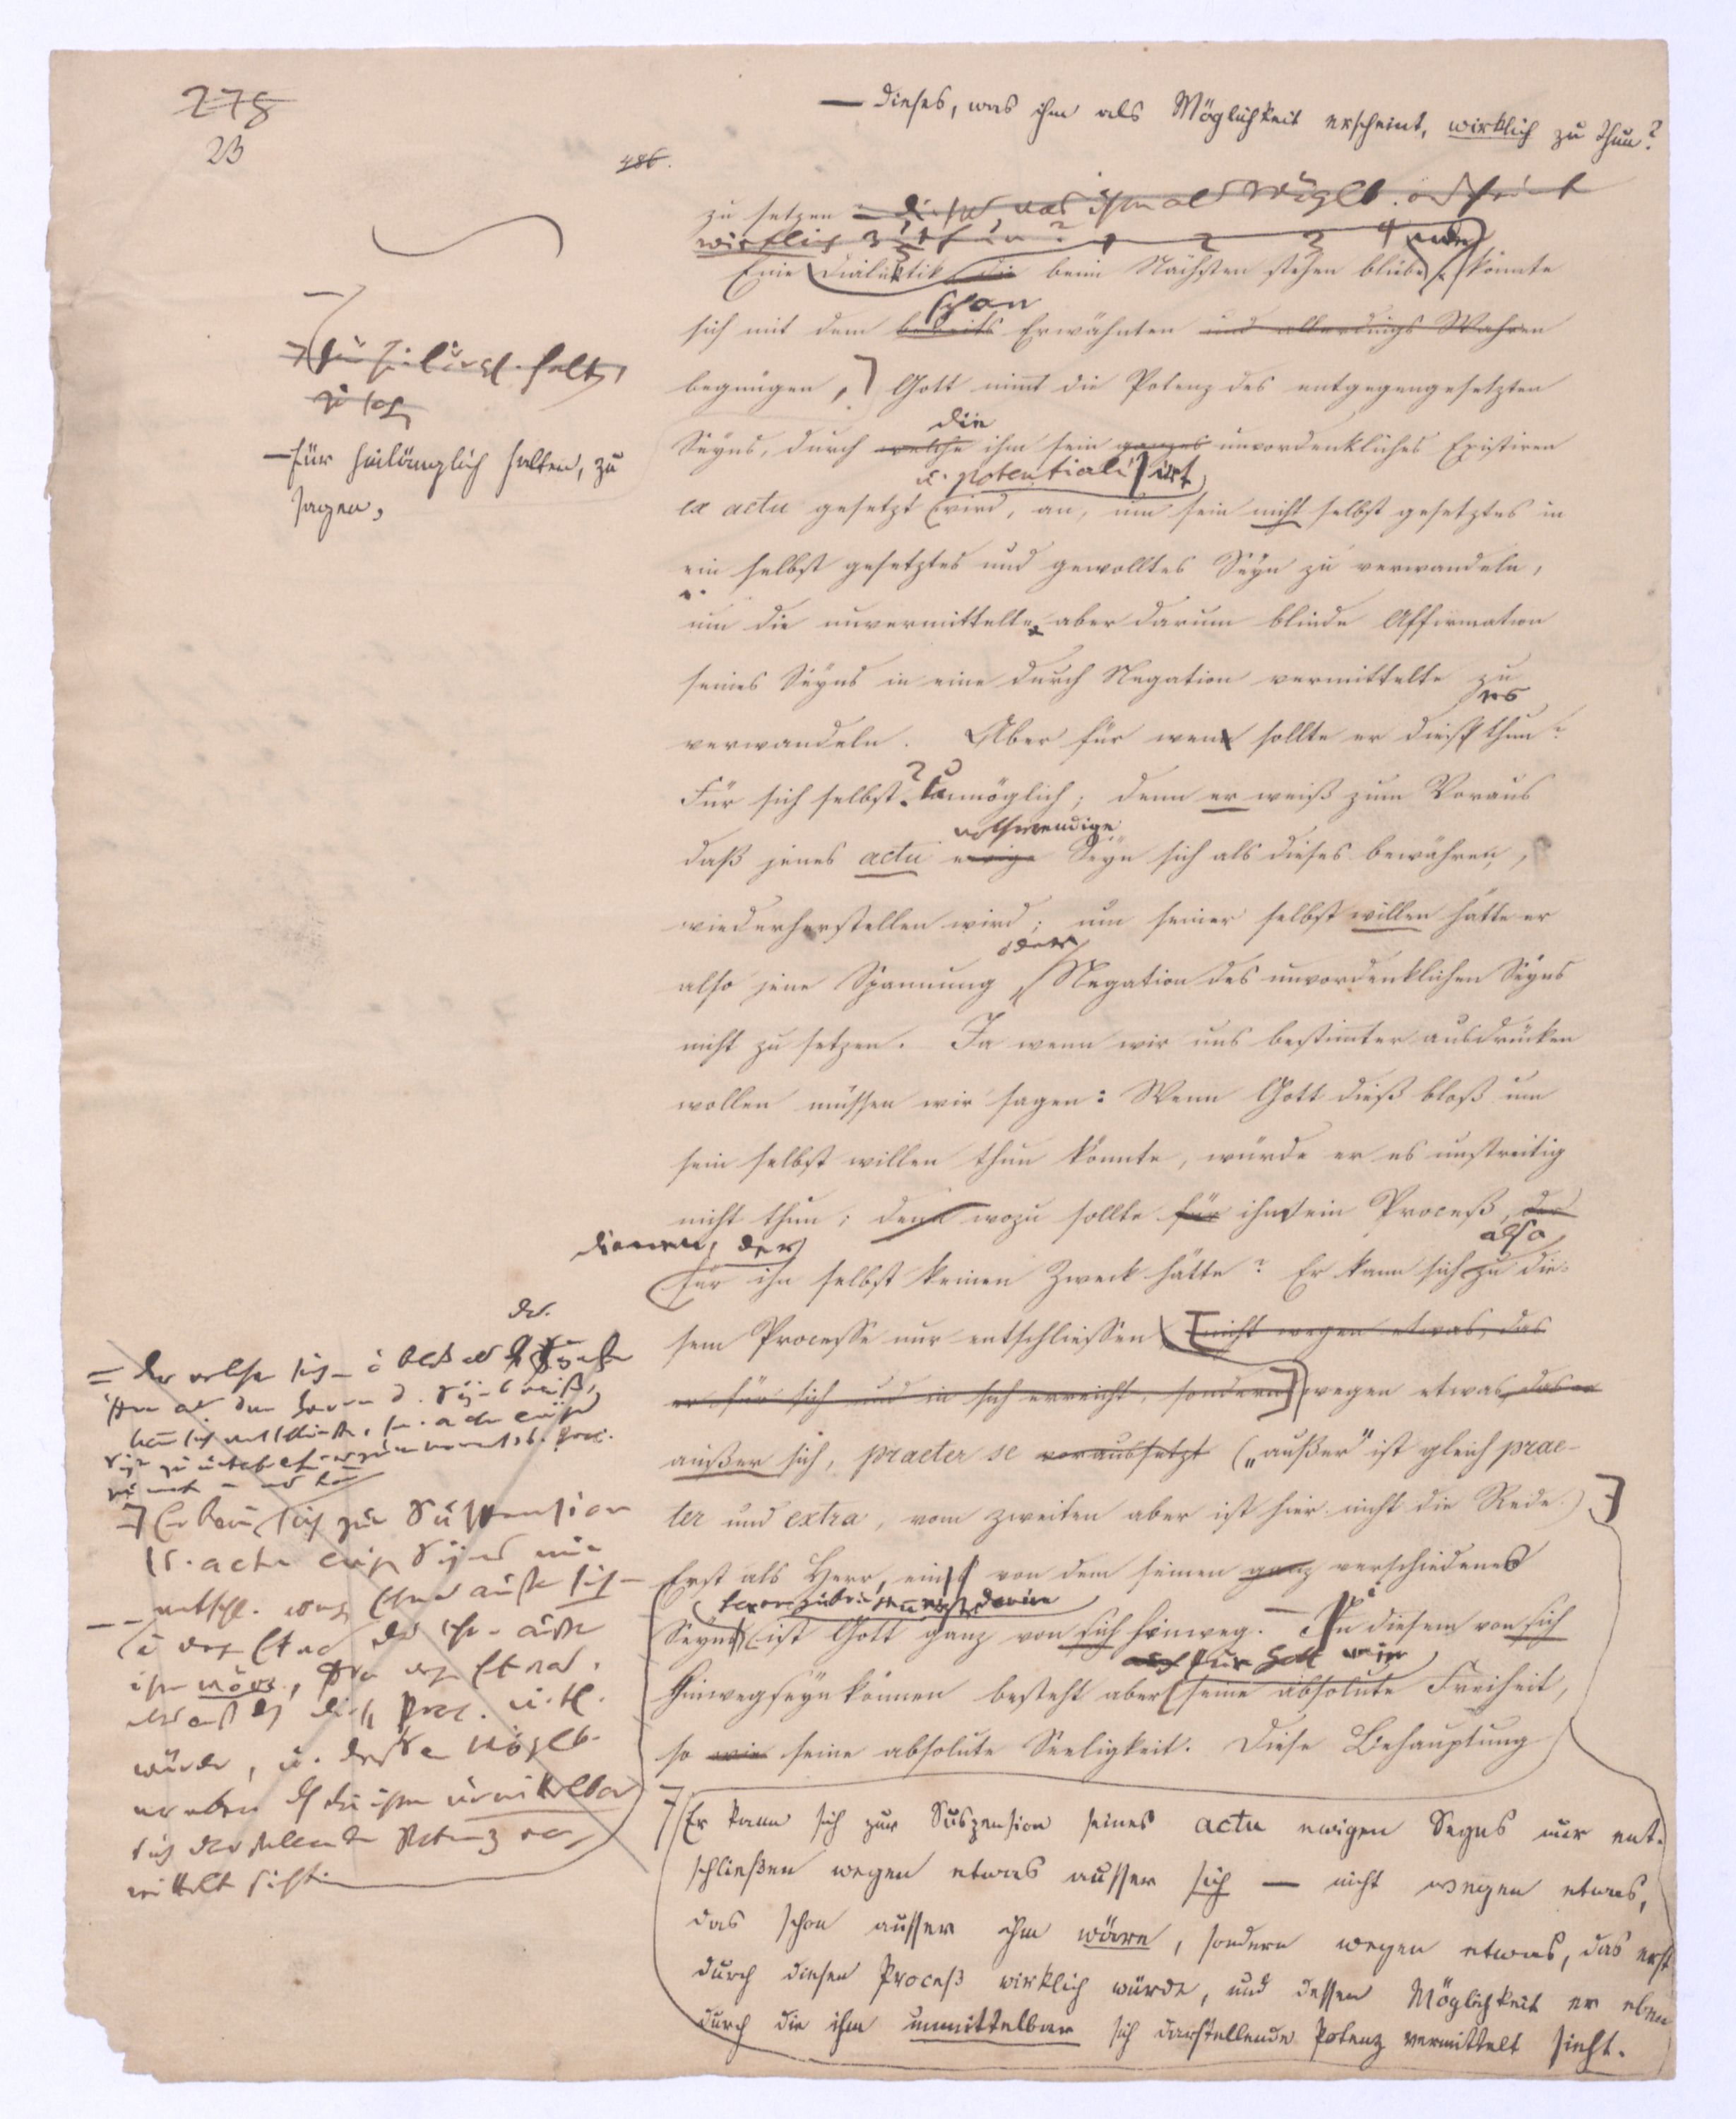 278
23
486.
— dieses, was ihm als Möglichkeit erscheint, wirklich zu thun?
zu setzen – dieses, was ihm als Mögl. erscheint
wirklich zu thun?
1 2 3 4
Eine Dialektik die beim Nächsten stehen bliebe, könnte
schon
sich mit dem bereits Erwähnten und allerdings Wahren
begnügen, Gott nimt die Potenz des entgegengesetzten
die
Seyns, durch welche ihm sein ganzes unvordenkliches Existiren
u. potentialisirt
ex actu gesetzt wird, an, um sein nicht selbst gesetztes in
ein selbst gesetztes und gewolltes Seyn zu verwandeln,
um die unvermittelte aber darum blinde Affirmation
seines Seyns in eine durch Negation vermittelte zu
verwandeln. Aber für wenn sollte er dieses thun?
Für sich selbst? Unmöglich; denn er weiß zum Voraus
nothwendige
daß jenes actu ewige Seyn sich als dieses bewähren,
wiederherstellen wird; um seiner selbst willen hätte er
oder
also jene Spannung, Negation des unvordenklichen Seyns
nicht zu setzen. Ja wenn wir uns bestimter ausdrücken
wollen müssen wir sagen: Wenn Gott dieß bloß um
sein selbst willen thun könnte, würde er es unstreitig
nicht thun; denn wozu sollte für ihm ein Proceß, der
dienen, der
also
für ihn selbst keinen Zweck hätte? Er kann sich zu die-
sem Processe nur entschliessen nicht wegen etwas, das
er für sich und in sich erreicht, sondern wegen etwas, das er
außer sich, praeter se voraussetzt („außer“ ist gleich prae-
ter und extra, vom zweiten aber ist hier nicht die Rede.)
Erst als Herr, ein von dem seinen ganz verschiedenes
hervorzubringen
Seyns ist Gott ganz von sich hinweg. – In diesem von sich
für Gott
Hinwegseyn können besteht aber seine absolute Freiheit,
so wie seine absolute Seeligkeit. Diese Behauptung
Er kann sich zur Suspension seines actu ewigen Seyns nur ent-
schließen wegen etwas ausser sich — nicht wegen etwas,
das schon ausser ihm wäre, sondern wegen etwas, das erst
durch diesen Proceß wirklich würde, und dessen Möglichkeit er eben
durch die ihm unmittelbar sich darstellende Potenz vermittelt sieht.
für hinlängl. halten,
zu sag
— für hinlänglich halten, zu
sagen,
Er kann sich zur Suspension
s. actu ewig. Seyns nur
entschl. weg. Etwas außer sich –
ihm wäre,
würde, u. dessen Möglk.
er eben durch die ihm unmittelbar
sich darstellende Potenz ver-
mittelt sieht.